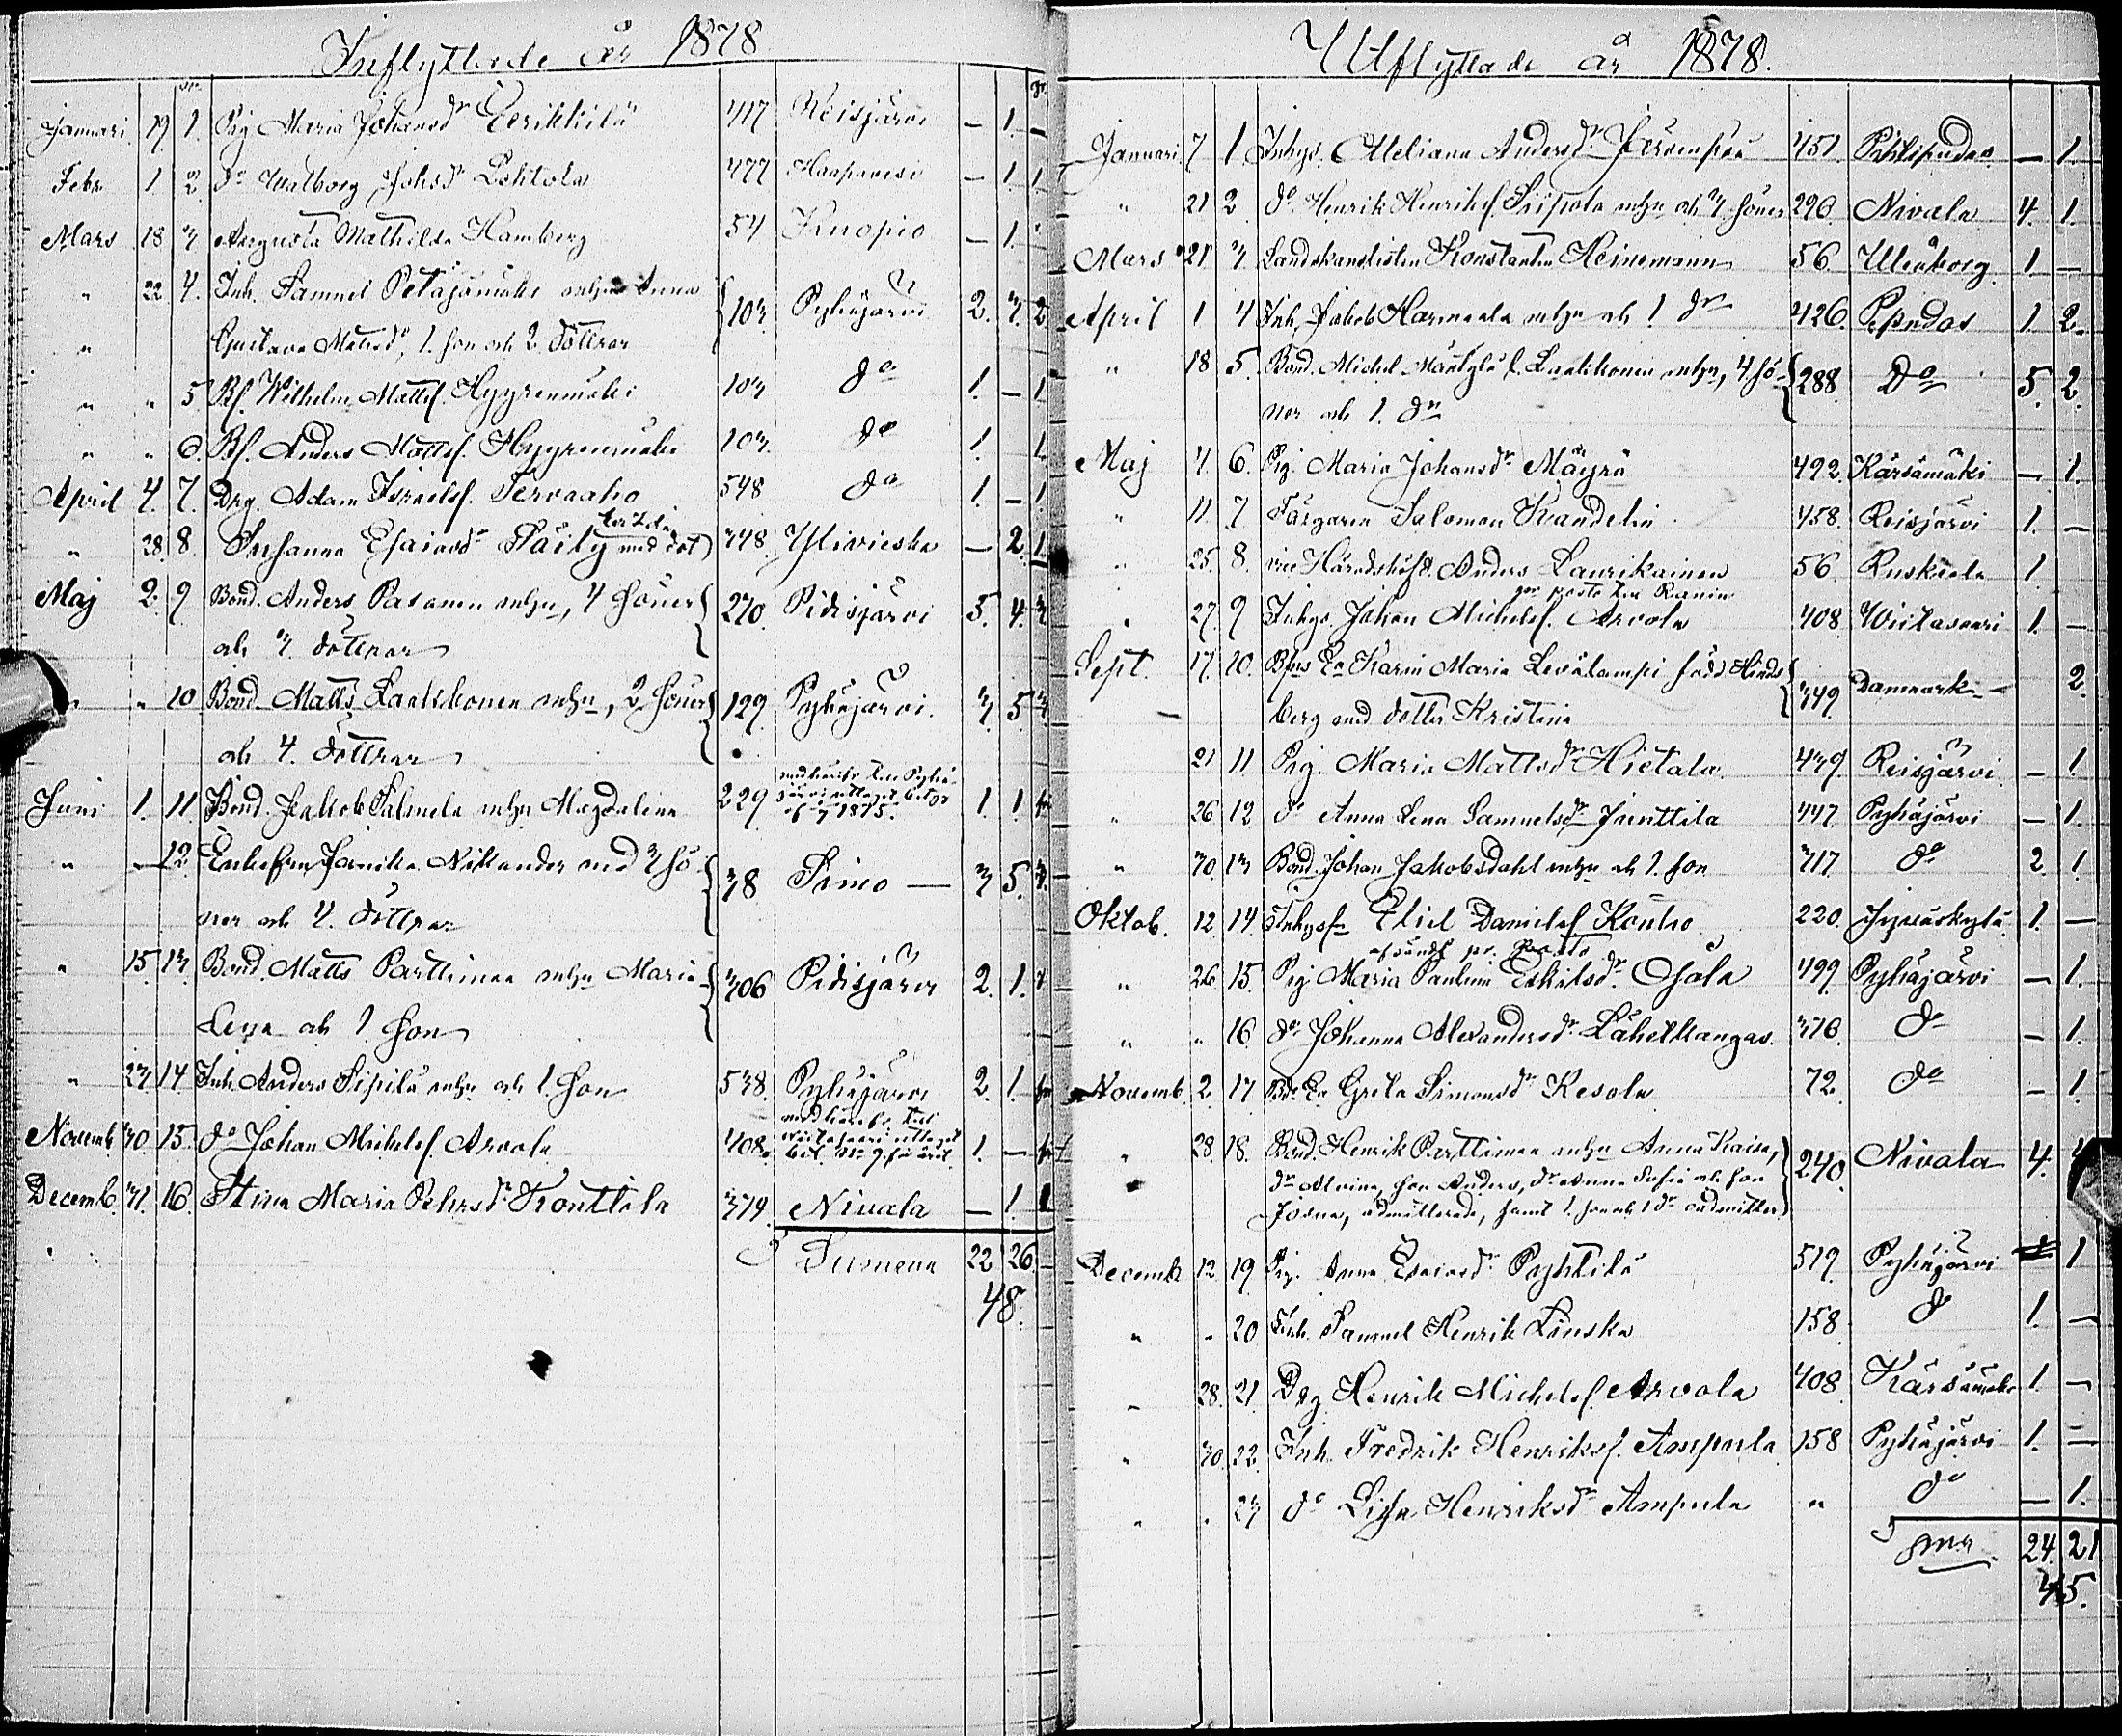 Inflyttade år 1878
Januari 19 1. Pig. Maria Johansdr Eerikkilä 417 Reisjärvi — 1. —
Febr. 1 2. do Walborg Johsdr Lehtola 477 Haapavesi — 1 1
Mars 18 3 Augusta Mathilda Hamberg 54 Kuopio — 1.
" 22 4. Inh. Samuel Petäjämäki mhu Anna 103 Pyhäjärvi 2. 3. 2
" Gustava Matsdr, 1. son och 2 döttrar
" " 5 Bs. Wilhelm Mattss. Hyyrenmäki 103 do 1. — 1.
" " 6. Bs. Anders Mattss. Hyyrenmäki 103. do 1. 1.
April 4. 7. Drg. Adam Israelss. Tervaaho 548 do 1. — 1
" 28. 8 Susanna Esaiasdr Päily med dot 348. Ylivieska — 2. 1
Maj 2. 9 Bond. Anders Pasanen mhu, 4 söner 270. Pidisjärvi 5. 4. 3
och 3. döttrar
" " 10 Bond. Matts Laakkonen mhu, 2 söner 129. Pyhäjärvi. 3 5 3
och 4. döttrar
Juni 1. 11. Bond. Jakob Salmela mhu Magdalena 229 1. 1.
" — 12. Enkefru Fanika Nikander med 3 sö- 38 Simo — 3 5. 3.
ner och 4. döttrar
" 15. 13. Bond. Matts Parttimaa mhu Maria 306 Pidisjärvi 2. 1.
Lena och 1. son
" 23. 14. Inh. Anders Sipilä mhu och 1. son 538. Pyhäjärvi 2. 1.
Novemb. 30. 15. do Johan Michelss. Arvola 408. 1. —
Decemb. 31. 16. Stina Maria Pehrsdr Konttila 379. Nivala — 1. 1
Summa 22 26.
48.
Utflyttade år 1878.
Januari 7 1 Inhys. Meliana Andersdr Järvenpää 451. Pihtipudas — 1.
" 21 2 do Henrik Henrikss. Siipola mhu och 3. söner 296 Nivala 4. 1.
Mars 21 3 Landskanslisten Konstantin Heinemann 56 Uleåborg 1 —
April 1 4 Inh. Jakob Harmaala mhu och 1 dr 426. Pipudas 1. 2.
" 18 5. Bond. Michel Mäntylä l. Laakkonen mhu, 4 sö- 288. Do 5. 2.
ner och 1. dr
Maj 3. 6. Pig. Maria Johansdr Mäyrä 492. Kärsämäki — 1.
" 11. 7 Färgaren Salomon Kandelin 458. Reisjärvi 1. —
" 25. 8. vice Häradshöfd. Anders Laurikainen 56. Ruskeala 1.
" 27. 9 Inhys. Johan Michelss. Arvola 408. Wiitasaari 1. —
Sept. 17. 10. Karin Maria Levälampi född Hinds 349. Danmark — 2.
berg med dotter Kristina
21 11 Pig. Maria Mattsdr Hietala 439. Reisjärvi — 1.
" 26 12 do Anna Lena Samuelsdr Junttila 447. Pyhäjärvi — 1.
" 30. 13 Bond. Johan Jakobsdahl mhu och 1. son 317 do 2. 1.
Oktob. 12. 14. Inhyss. Eliel Danielss. Koutio 220. Jyväskylä 1. —
afsändt pr. posto
" 26 15. Pig. Maria Paulina Eskelsdr Ojala 499. Pyhäjärvi — 1.
" " 16. do Johanna Alexandersdr Lähetkangas. 376. do — 1.
Novemb. 2. 17 Greta Simonsdr Kesola 72. do — 1.
" 28. 18. Bond. Henrik Parttimaa mhu Anna Kaisa, 240. Nivala 4.
dr Alvina, son Anders, dr Anna Sofia och son
Josua, admitterade, samt 1. son och 1 dr oadmitter.
Decemb. 12 19 Pig. Anna Esaiasdr Pyhtilä 519. Pyhäjärvi 1
" " 20 Inh. Samuel Henrik Linska 158 do 1. —
" 28. 21. Drg Henrik Michelss. Arvola 408 Kärsämäki 1. —
" 30. 22. Inh. Fredrik Henrikss. Ampula 158 Pyhäjärvi 1. —
" " 23 do Lisa Henriksdr Ampula " do — 1.
Sma 24. 21
45.